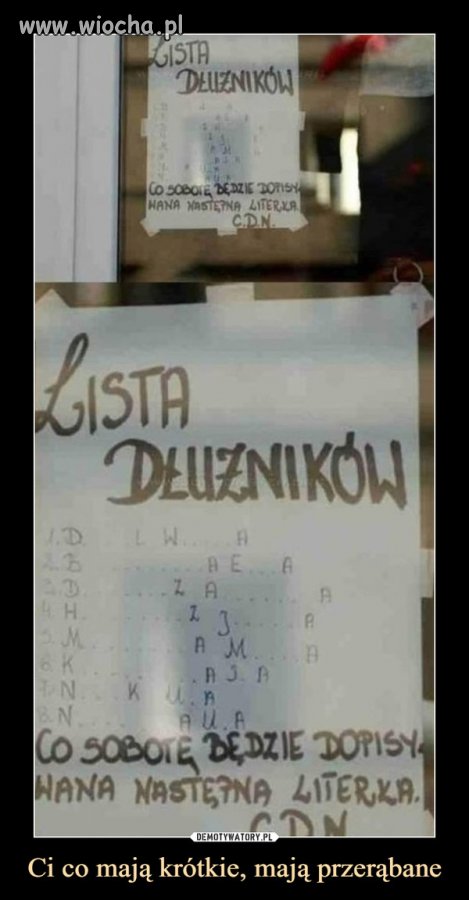 www.wiocha.pl
LISTA
DŁUŻNIKÓW
CO SOBOTĘ BĘDZIE DOPISY-
WANA NASTĘPNA LITERKA.
C.D.N.
LISTA
DŁUŻNIKÓW
1. D. . . L W . . . . . A
2. B . . . . . . . . A E . . . A
3. D. . . . . . Z A . . . . . . . A
4. H. . . . . . . Z J . . . . . A
5. M . . . . . . . A M . . . . A
6. K . . . . . . . . A J . A
7. N . . . K U . A
8. N . . . . . . A U . A
CO SOBOTĘ BĘDZIE DOPISY-
WANA NASTĘPNA LITERKA.
C D N
DEMOTYWATORY.PL
Ci co mają krótkie, mają przerąbane